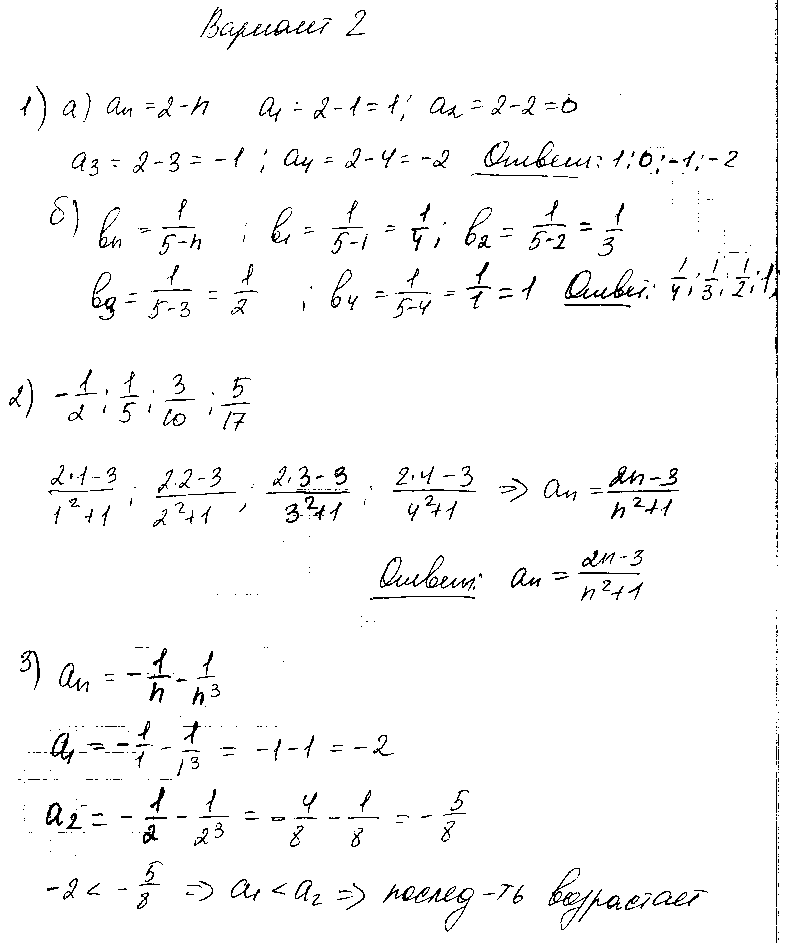 Вариант 2
1) а) aₙ = 2-n a₁ = 2-1 = 1; a₂ = 2-2 = 0
a₃ = 2-3 = -1; a₄ = 2-4 = -2 Ответ: 1; 0; -1; -2
б) bₙ = 1/(5-n); b₁ = 1/(5-1) = 1/4; b₂ = 1/(5-2) = 1/3
b₃ = 1/(5-3) = 1/2; b₄ = 1/(5-4) = 1/1 = 1 Ответ: 1/4; 1/3; 1/2; 1;
2) -1/2; 1/5; 3/10; 5/17
(2·1-3)/(1²+1); (2·2-3)/(2²+1); (2·3-3)/(3²+1); (2·4-3)/(4²+1) => aₙ = (2n-3)/(n²+1)
Ответ: aₙ = (2n-3)/(n²+1)
3) aₙ = -1/n - 1/n³
a₁ = -1/1 - 1/1³ = -1-1 = -2
a₂ = -1/2 - 1/2³ = -4/8 - 1/8 = -5/8
-2 < -5/8 => a₁ < a₂ => послед-ть возрастает